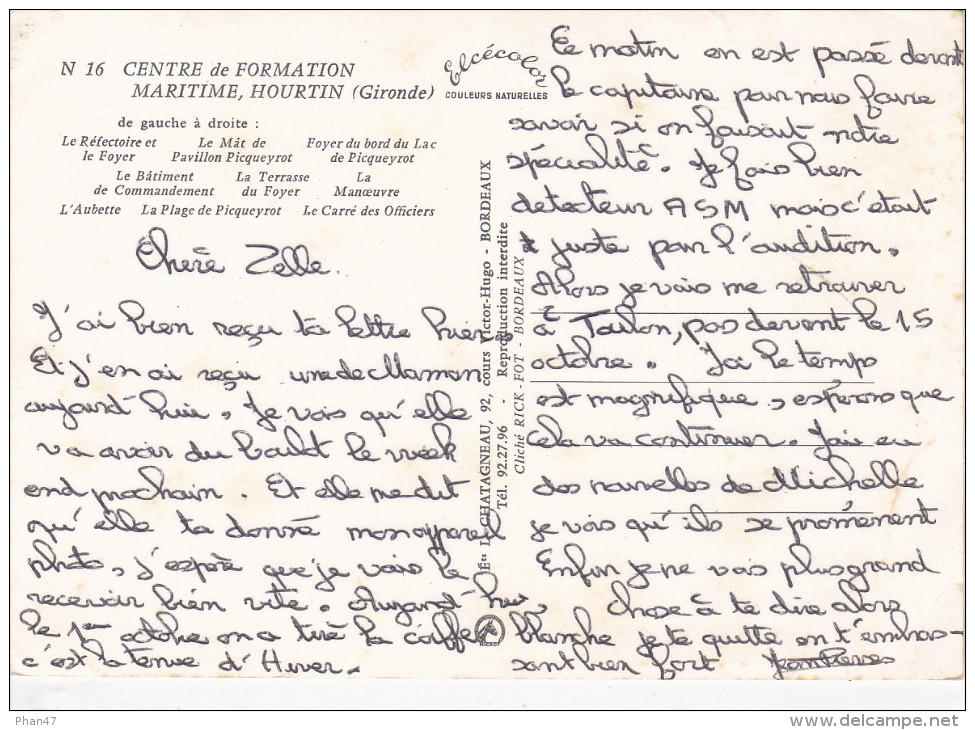 N 16 CENTRE de FORMATION
MARITIME, HOURTIN (Gironde)
de gauche à droite :
Le Réfectoire et le Foyer
Le Mât de Pavillon Picqueyrot
Foyer du bord du Lac de Picqueyrot
Le Bâtiment de Commandement
La Terrasse du Foyer
La Manœuvre
L'Aubette La Plage de Picqueyrot Le Carré des Officiers
Elcécolor
COULEURS NATURELLES
Chère Zelle.
J'ai bien reçu ta lettre hier
Et j'en ai reçu une de Maman
aujourd'hui, Je vois qu'elle
va avoir du boulot le week
end prochain. Et elle me dit
qu'elle ta donné mon appareil
photo, j'espère que je vais le
recevoir bien vite. Aujourd'hui,
le 1er octobre on a tiré la coiffe
c'est la tenue d'Hiver.
Ets L. CHATAGNEAU, 92, cours Victor-Hugo - BORDEAUX
Tél. 92.27.96 - Reproduction interdite
Cliché RICK-FOT - BORDEAUX
Ce matin on est passé devant
le capitaine pour nous faire
savoir si on faisait notre
spécialité. Je fais bien
détecteur ASM mais c'était
juste pour l'audition.
Alors je vais me retrouver
à Toulon, pas devant le 15
octobre. Ici le temps
est magnifique, espérons que
cela va continuer. J'ai eu
des nouvelles de Michelle
je vois qu'ils se promènent
Enfin je ne vois plus grand
chose à te dire alors
blanche je te quitte en t'embras-
sant bien fort
Phan47
www.delcampe.net